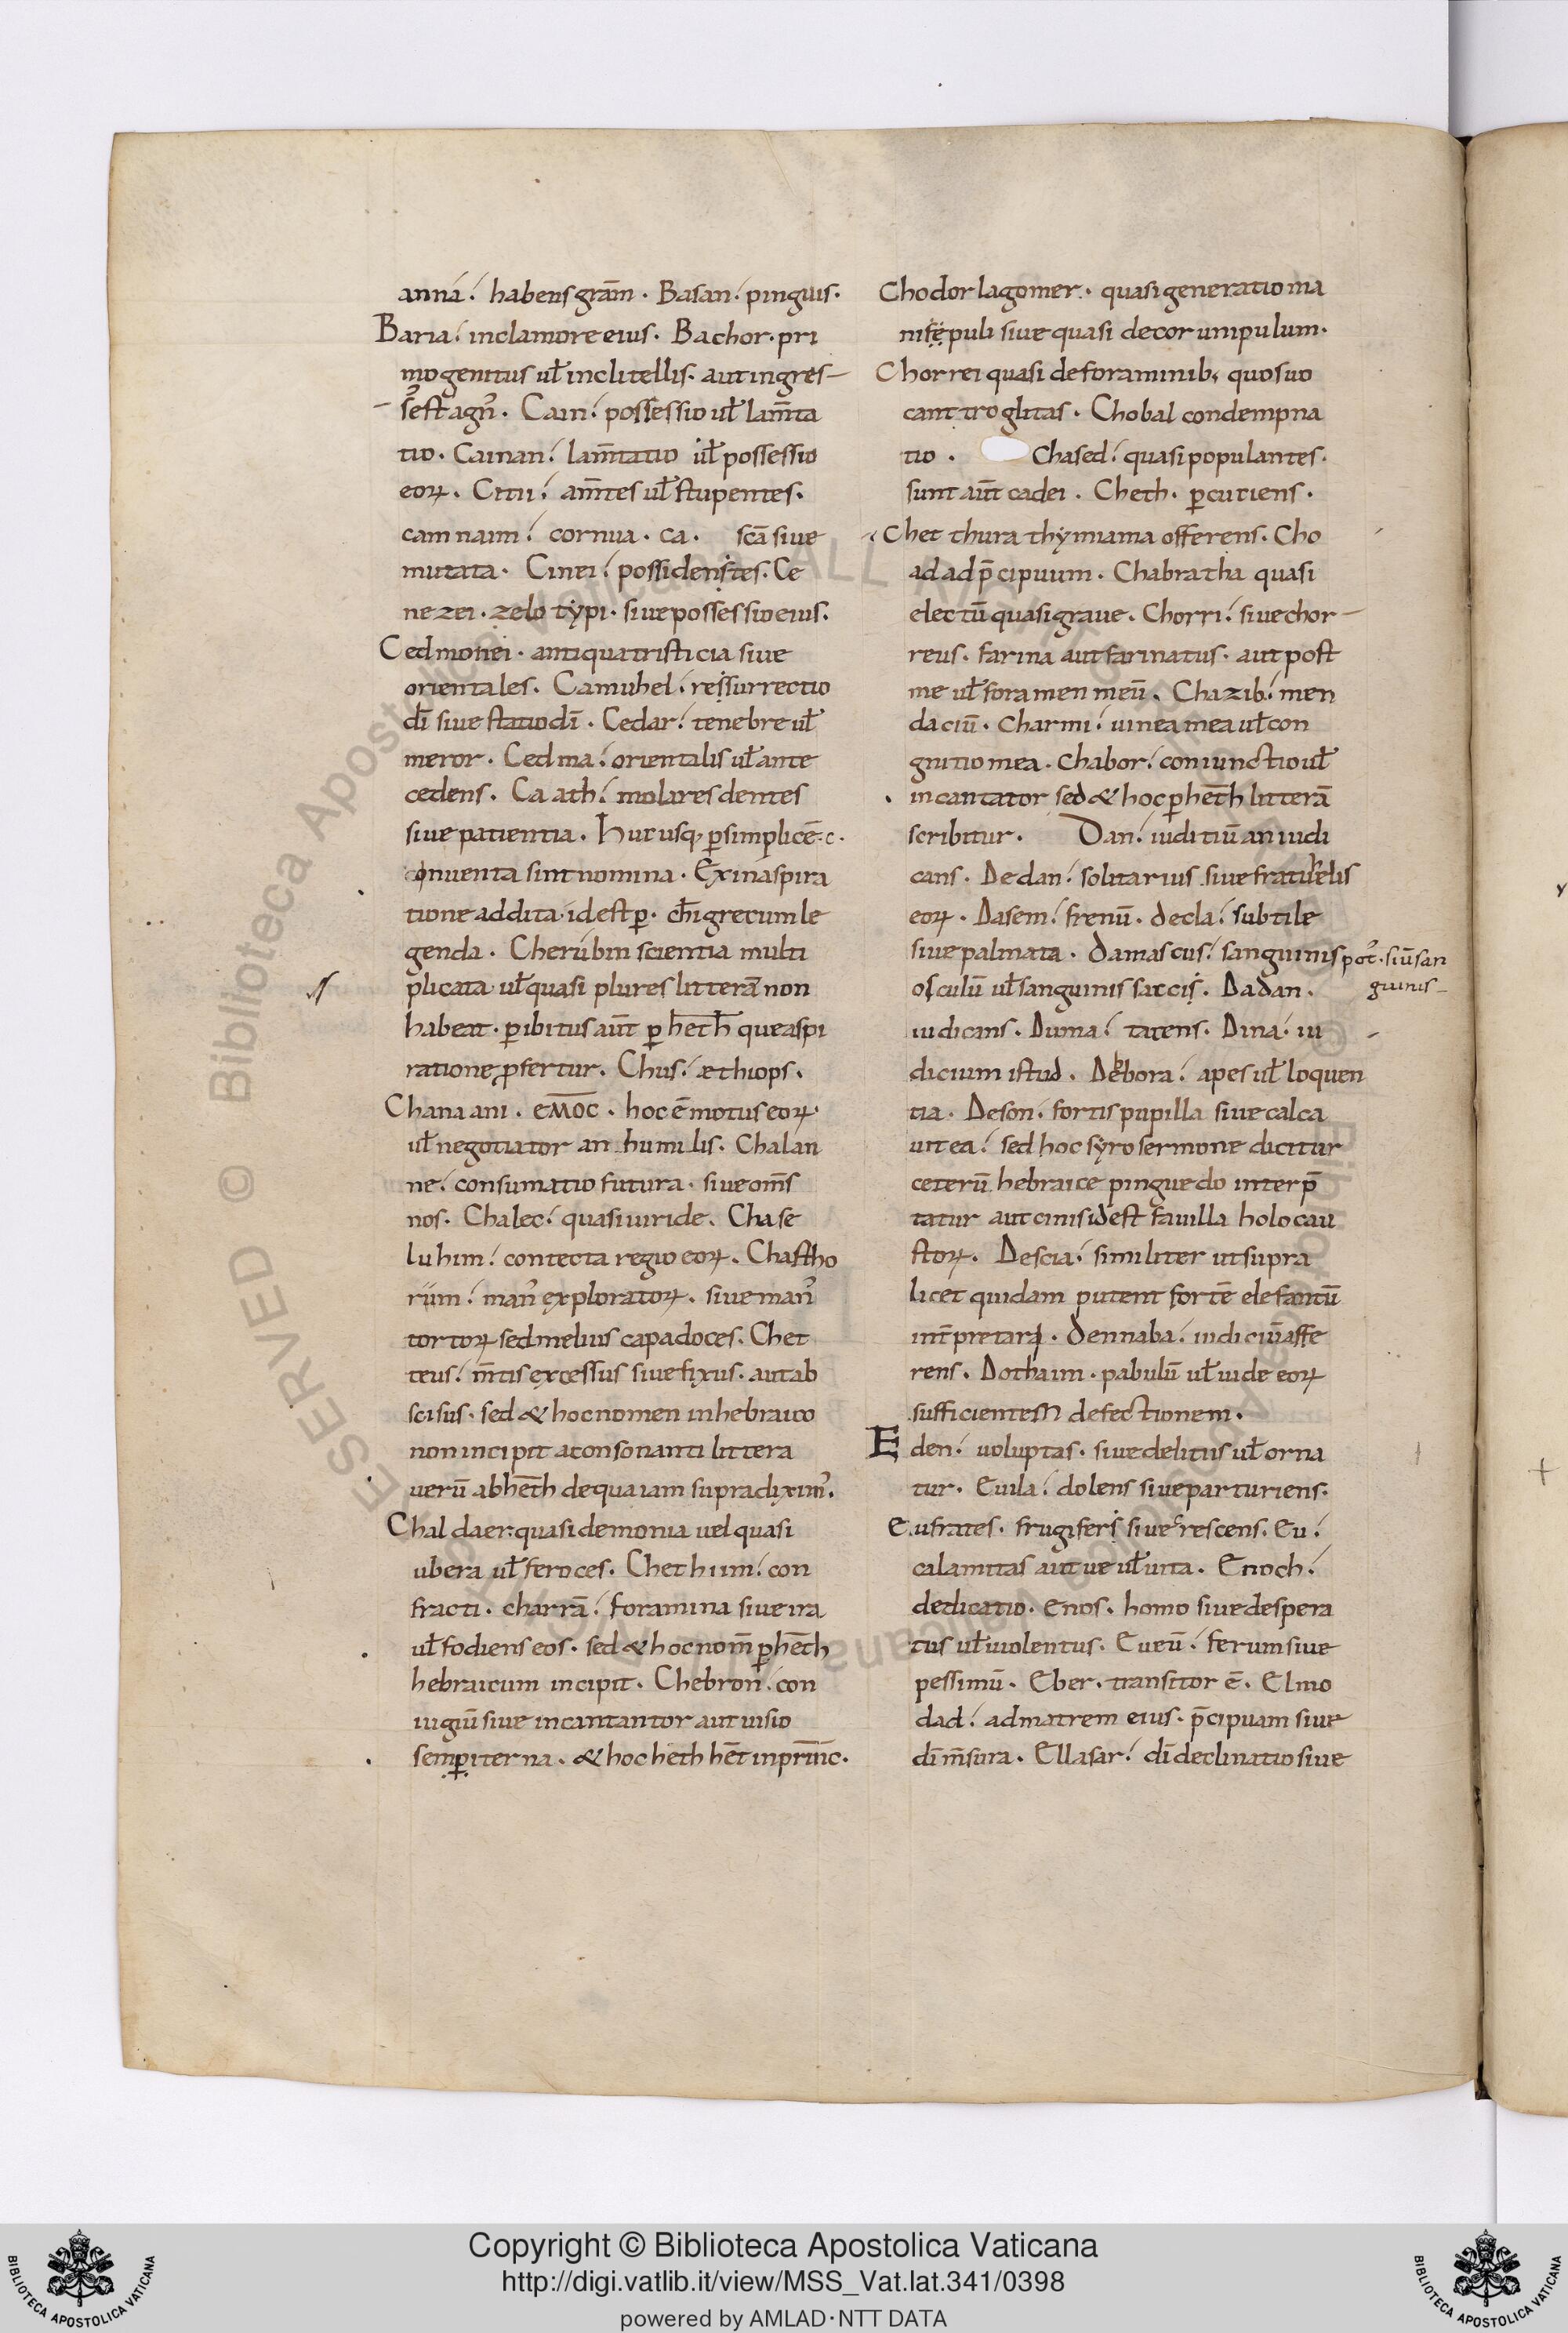 anna. habens gram̅. Basan. pinguis.
Baria. in clamore eius. Bachor. pri
mogenitus ul̅ in clitellis. aut ingres
s̉ est agn̉. Cain. possessio ul̅ lam̅ta
tio. Cainan. lam̅tatio ul̅ possessio
eoꝝ. Citii. am̅tes ul̅ stupentes.
camnaim. cornua. ca. sc̅a siue
mutata. Cinei. possidenstes. Ce
nezei. zelo typi. siue possessio eius.
Cedmonei. antiqua tristicia siue
orientales. Camuhel. ressurrectio
di̅ siue statio di̅. Cedar. tenebre ul̅
meror. Cedma. orientalis ul̅ ante
cedens. Caath. molares dentes
siue patientia. Hucusq; ꝑ simplice̅. c.
conuenta sint nomina. Exin aspira
tione addita. id est ꝑ. chi̅ grecum le
genda. Cherubin scientia multi
plicata. ul̅ quasi plures littera̅ non
habeat. ꝑibitus aut̅ ꝑ heth̅ que aspi
ratione ꝓfertur. Chus. æthiops.
Chanaani. e̅m̅o̅c̅. hoc e̅ motus eoꝝ.
ul̅ negotiator an humilis. Chalan
ne. consumatio futura. siue om̅s
nos. Chalec. quasi uiride. Chase
luhim. contecta regio eoꝝ. Chastho
rüm. man̉ exploratoꝝ. siue man̉
tortoꝝ sed melius capadoces. Chet
teus. m̅tis excessus siue fixus. aut ab
scisus. sed & hoc nomen in hebraico
non incipit a consonanti littera
ueru̅ ab he̅th de qua iam supra dixim̉.
Chaldaer. quasi demonia uel quasi
ubera ul̅ feroces. Chethiim. con
fracti. charra̅. foramina siue ira
ul̅ fodiens eos. sed & hoc nom̅ ꝑ he̅th
hebraicum incipit. Chebron. con
iugiu̅ siue incantantor aut uisio
semꝑiterna. & hoc heth he̅t in prin̅c.
Chodorlagomer. quasi generatio ma
nisepuli siue quasi decorum pulum.
Chorrei quasi de foraminib; quos uo
cant troglitas. Chobal condempna
tio. Chased. quasi populantes.
sunt aut̅ cadei. Cheth. ꝑcutiens.
Chet thura thymiama offerens. Cho
ad ad p̅cipuum. Chabratha quasi
electu̅ quasi graue. Chorri. siue chor
reus. farina aut farinatus. aut post
me ul̅ foramen meu̅. Chazib. men
daciu̅. Charmi. uinea mea ul̅ con
gnitio mea. Chabor. coniunctio ul̅
incantator sed & hoc ꝑ he̅th littera̅
scribitur. Dan. iuditiu̅ an iudi
cans. Dedan. solitarius siue fratuelis
eoꝝ. Dasem. frenu̅. decla. subtile
siue palmata. Damascus. sanguinis pot̉. siu̅ san
guinis
osculu̅ ul̅ sanguinis saccis. Dadan.
iudicans. Duma. tacens. Dina. iu
dicium istud. Debbora. apes ul̅ loquen
tia. Deson. fortis pupilla siue calca
uit ea. sed hoc syro sermone dicitur
ceteru̅ hebraice pinguedo interp̅
tatur aut cinis id est fauilla holocau
stoꝝ. Descia. similiter ut supra
licet quidam putent forte̅ elefantu̅
int̅pretari. Dennaba. iudiciu̅ affe
rens. Dothaim. pabulu̅ ul̅ uide eoꝝ
sufficientem defectionem.
Eden. uoluptas. siue delitiis ul̅ orna
tur. Euila. dolens siue parturiens.
Eufrates. frugifers siue crescens. Eu.
calamitas aut ue ul̅ uita. Enoch.
dedicatio. Enos. homo siue despera
tus ul̅ uiolentus. Eueu̅. ferum siue
pessimu̅. Eber. transitor e̅. Elmo
dad. ad matrem eius. p̅cipuam siue
di̅ m̅sura. Ellasar. di̅ declinatio siue
Copyright © Biblioteca Apostolica Vaticana
http://digi.vatlib.it/view/MSS_Vat.lat.341/0398
powered by AMLAD·NTT DATA
BIBLIOTECA APOSTOLICA VATICANA
BIBLIOTECA APOSTOLICA VATICANA